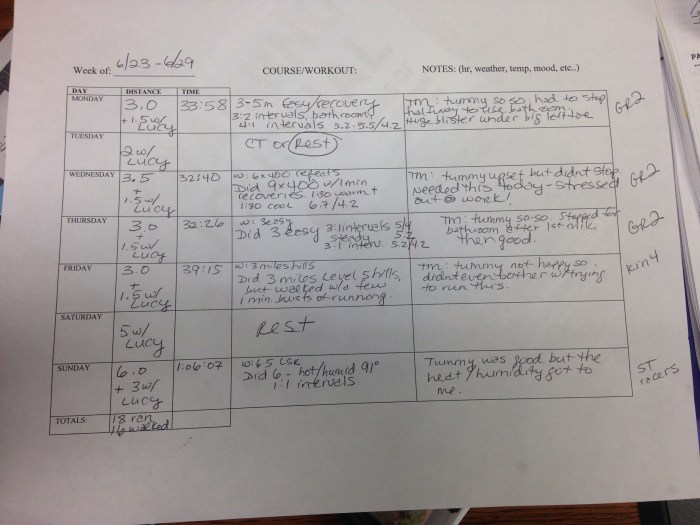 Week of: 6/23 - 6/29 COURSE/WORKOUT: NOTES: (hr, weather, temp, mood, etc..)
DAY DISTANCE TIME
MONDAY 3.0 33:58 3-5m Easy/recovery TM: tummy so so, had to stop GR2
+ 1.5 w/ 3:2 intervals, bathroom, halfway to use bathroom.
Lucy 4:1 intervals 5.2-5.5/4.2 Huge blister under big left toe
TUESDAY CT or Rest
2 w/
Lucy
WEDNESDAY 3.5 32:40 W: 6x400 repeats TM: tummy upset but didnt stop GR2
+ Did 9x400 w/1min Needed this today - stressed
1.5 w/ recoveries. 1:30 warm + out @ work!
Lucy 1:30 cool 6.7/4.2
THURSDAY 3.0 32:26 W: 3 easy TM: tummy so-so. Stopped for GR2
+ Did 3 easy 3:1 intervals 5/4 bathroom after 1st mile,
1.5 w/ steady 5.2 then good.
Lucy 3:1 interv. 5.2/4.2
FRIDAY 3.0 39:15 W: 3 miles hills TM: tummy not happy so Kin4
+ Did 3 miles Level 5 hills, didnt even bother w/trying
1.5 w/ but walked w/a few to run this.
Lucy 1 min. bursts of running.
SATURDAY Rest
5 w/
Lucy
SUNDAY 6.0 1:06:07 W: 6.5 LSR Tummy was good but the ST
+ 3 w/ Did 6 - hot/humid 91° heat/humidity got to racers
Lucy 1:1 intervals me.
TOTALS: 18 ran
16 walked
PA